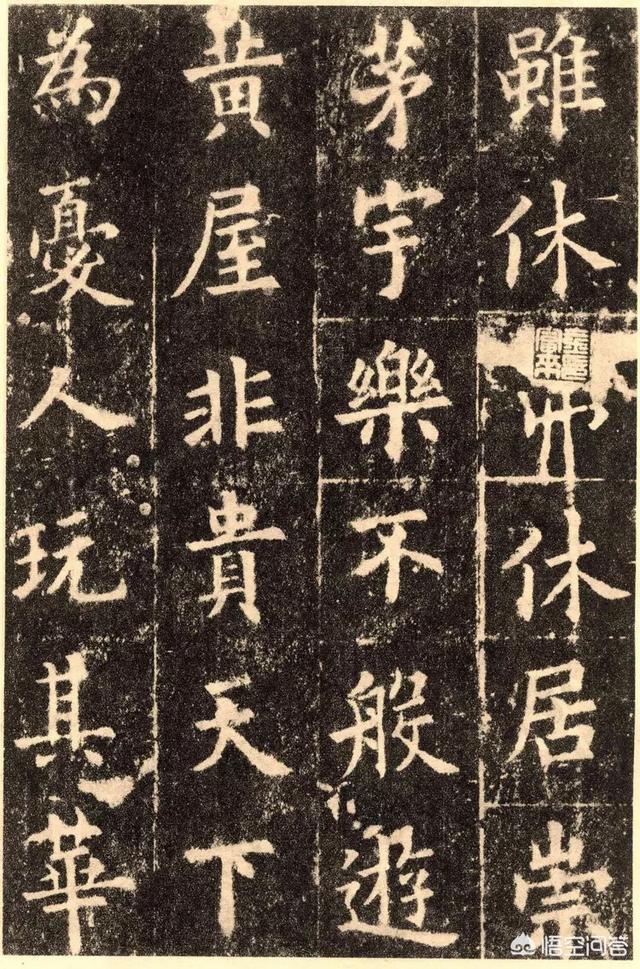 雖休休居崇
茅宇樂不般遊
黄屋非貴天下
為憂人玩其華
悟空问答